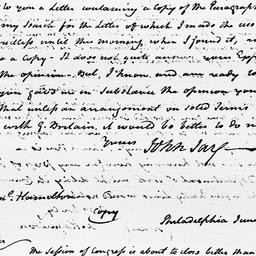 to you a Letter containing a copy of the Paragraph
my search for the letter of which I made the
until this morning when I found it, a
a Copy - It does not quite answer your
the opinion - But, I know, and am ready to
give gave me in Substance the opinion you
that unless an arrangement on solid Terms
with G. Britain, it would be better to do n
yours
John Jay
Copy
Philadelphia June
The session of Congress is about to close better than